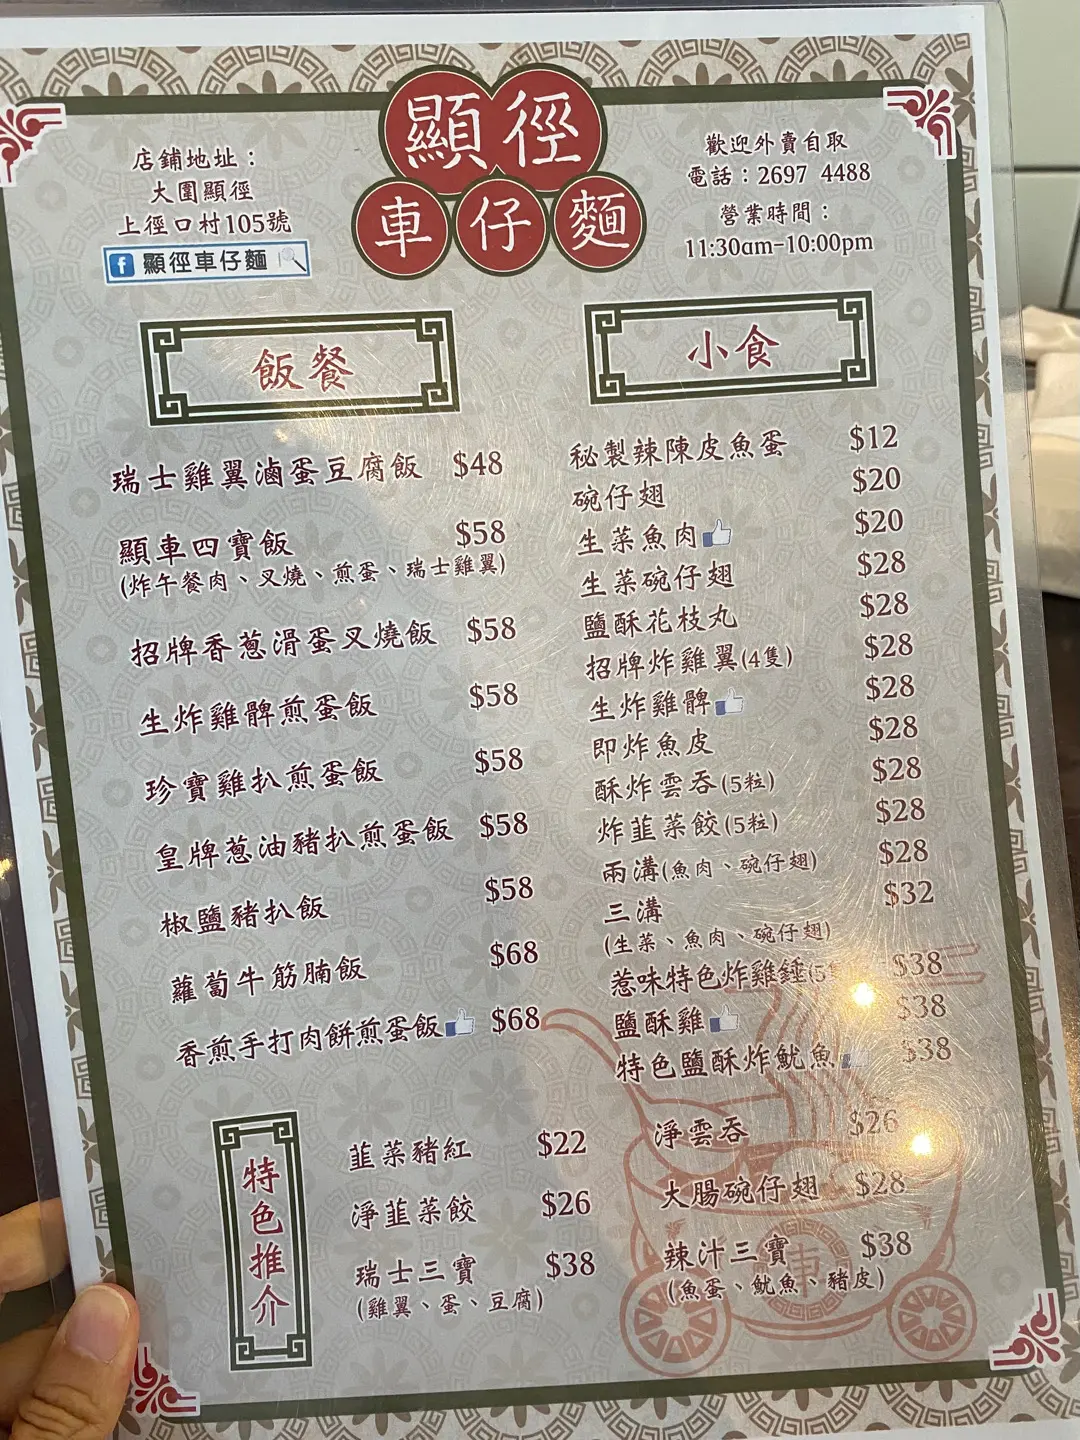 顯徑
車仔麵
店鋪地址：
大圍顯徑
上徑口村105號
f 顯徑車仔麵
歡迎外賣自取
電話：2697 4488
營業時間：
11:30am-10:00pm
飯餐
瑞士雞翼滷蛋豆腐飯 $48
顯車四寶飯 $58
(炸午餐肉、叉燒、煎蛋、瑞士雞翼)
招牌香蔥滑蛋叉燒飯 $58
生炸雞髀煎蛋飯 $58
珍寶雞扒煎蛋飯 $58
皇牌蔥油豬扒煎蛋飯 $58
椒鹽豬扒飯 $58
蘿蔔牛筋腩飯 $68
香煎手打肉餅煎蛋飯 $68
小食
秘製辣陳皮魚蛋 $12
碗仔翅 $20
生菜魚肉 $20
生菜碗仔翅 $28
鹽酥花枝丸 $28
招牌炸雞翼(4隻) $28
生炸雞髀 $28
即炸魚皮 $28
酥炸雲吞(5粒) $28
炸韮菜餃(5粒) $28
兩溝(魚肉、碗仔翅) $28
三溝 $32
(生菜、魚肉、碗仔翅)
惹味特色炸雞錘(5 $38
鹽酥雞 $38
特色鹽酥炸魷魚 $38
特色推介
韮菜豬紅 $22
淨韮菜餃 $26
瑞士三寶 $38
(雞翼、蛋、豆腐)
淨雲吞 $26
大腸碗仔翅 $28
辣汁三寶 $38
(魚蛋、魷魚、豬皮)
車